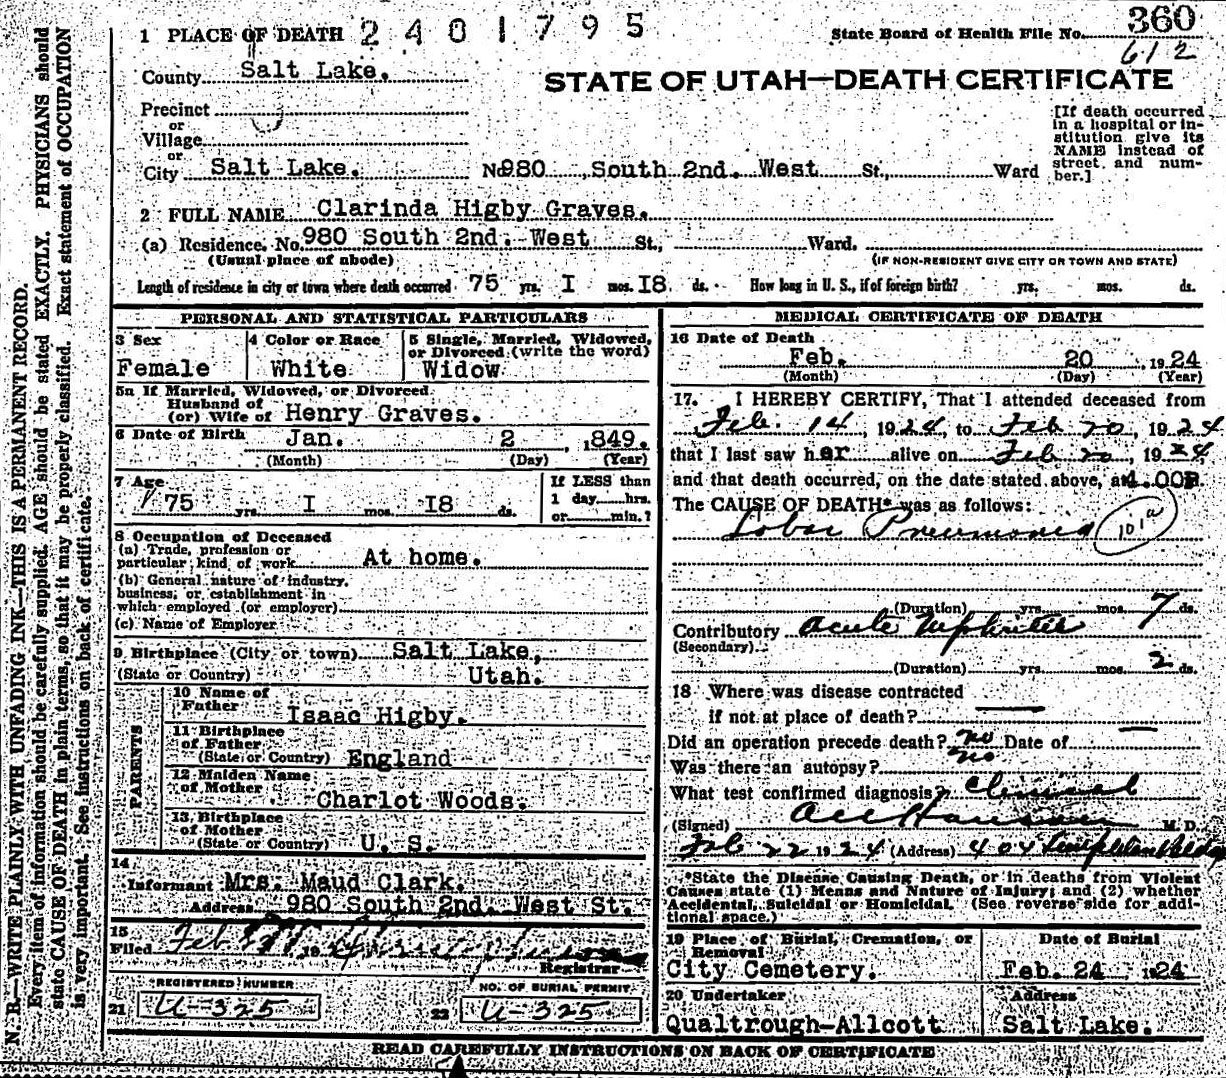 1 PLACE OF DEATH 2401795
State Board of Health File No. 360
612
County Salt Lake.
STATE OF UTAH—DEATH CERTIFICATE
Precinct
or
Village
or
City Salt Lake. No 980 South 2nd. West St., Ward
[If death occurred
in a hospital or in-
stitution give its
NAME instead of
street and num-
ber.]
2 FULL NAME Clarinda Higby Graves.
(a) Residence. No. 980 South 2nd. West St., Ward.
(Usual place of abode) (IF NON-RESIDENT GIVE CITY OR TOWN AND STATE)
Length of residence in city or town where death occurred 75 yrs. I mos. I8 ds. How long in U. S., if of foreign birth? yrs. mos. ds.
PERSONAL AND STATISTICAL PARTICULARS
3 Sex
Female
4 Color or Race
White
5 Single, Married, Widowed,
or Divorced (write the word)
Widow
5a If Married, Widowed, or Divorced
Husband of
(or) Wife of Henry Graves.
6 Date of Birth Jan. 2 ,849.
(Month) (Day) (Year)
7 Age
75 yrs. I mos. I8 ds.
If LESS than
1 day hrs.
or min.?
8 Occupation of Deceased
(a) Trade, profession or
particular kind of work At home.
(b) General nature of industry,
business, or establishment in
which employed (or employer)
(c) Name of Employer
9 Birthplace (City or town) Salt Lake,
(State or Country) Utah.
PARENTS
10 Name of
Father Isaac Higby.
11 Birthplace
of Father
(State or Country) England
12 Maiden Name
of Mother Charlot Woods.
13 Birthplace
of Mother
(State or Country) U. S.
14
Informant Mrs. Maud Clark.
Address 980 South 2nd. West St.
15
Filed Feb 19
Registrar
REGISTERED NUMBER
21 U-325
NO. OF BURIAL PERMIT
22 U-325
MEDICAL CERTIFICATE OF DEATH
16 Date of Death
Feb. 20 , 1924
(Month) (Day) (Year)
17. I HEREBY CERTIFY, That I attended deceased from
Feb. 14, 1924, to Feb 20, 1924
that I last saw her alive on Feb 20, 1924
and that death occurred, on the date stated above, at 4.00P.
The CAUSE OF DEATH* was as follows:
Lobar Pneumonia 101a
(Duration) yrs. mos. 7 ds.
Contributory Acute Nephritis
(Secondary)
(Duration) yrs. mos. 2 ds.
18 Where was disease contracted
if not at place of death?
Did an operation precede death? no Date of
Was there an autopsy? no
What test confirmed diagnosis? Clinical
(Signed) M. D.
Feb 22 1924 (Address) 404 Templeton Bldg
*State the Disease Causing Death, or in deaths from Violent
Causes state (1) Means and Nature of Injury; and (2) whether
Accidental, Suicidal or Homicidal. (See reverse side for addi-
tional space.)
19 Place of Burial, Cremation, or
Removal
City Cemetery.
Date of Burial
Feb. 24 1924
20 Undertaker
Qualtrough-Allcott
Address
Salt Lake.
READ CAREFULLY INSTRUCTIONS ON BACK OF CERTIFICATE
N. B.—WRITE PLAINLY WITH UNFADING INK—THIS IS A PERMANENT RECORD.
Every item of information should be carefully supplied. AGE should be stated EXACTLY. PHYSICIANS should
state CAUSE OF DEATH in plain terms, so that it may be properly classified. Exact statement of OCCUPATION
is very important. See instructions on back of certificate.